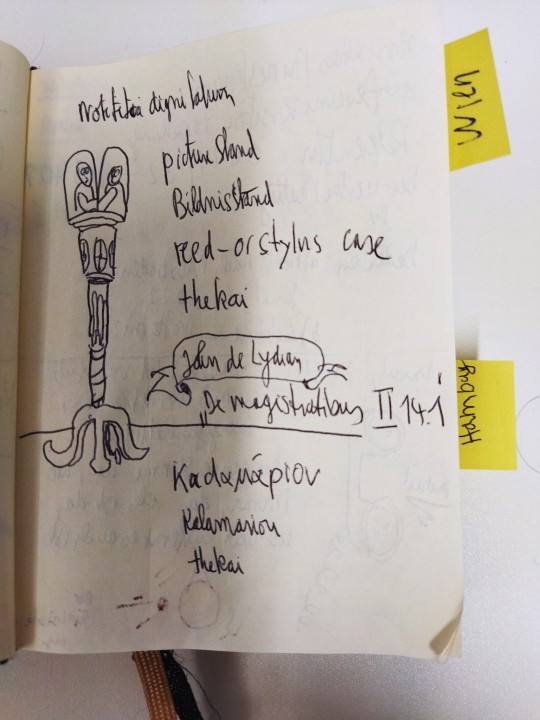 Notitia dignitatum
picture stand
Bildnisstand
reed-or stylus case
thekai
John de Lydian
"De magistratibus II 14.1
καλαμάριον
Kalamariou
thekai
Wien
Hamburg